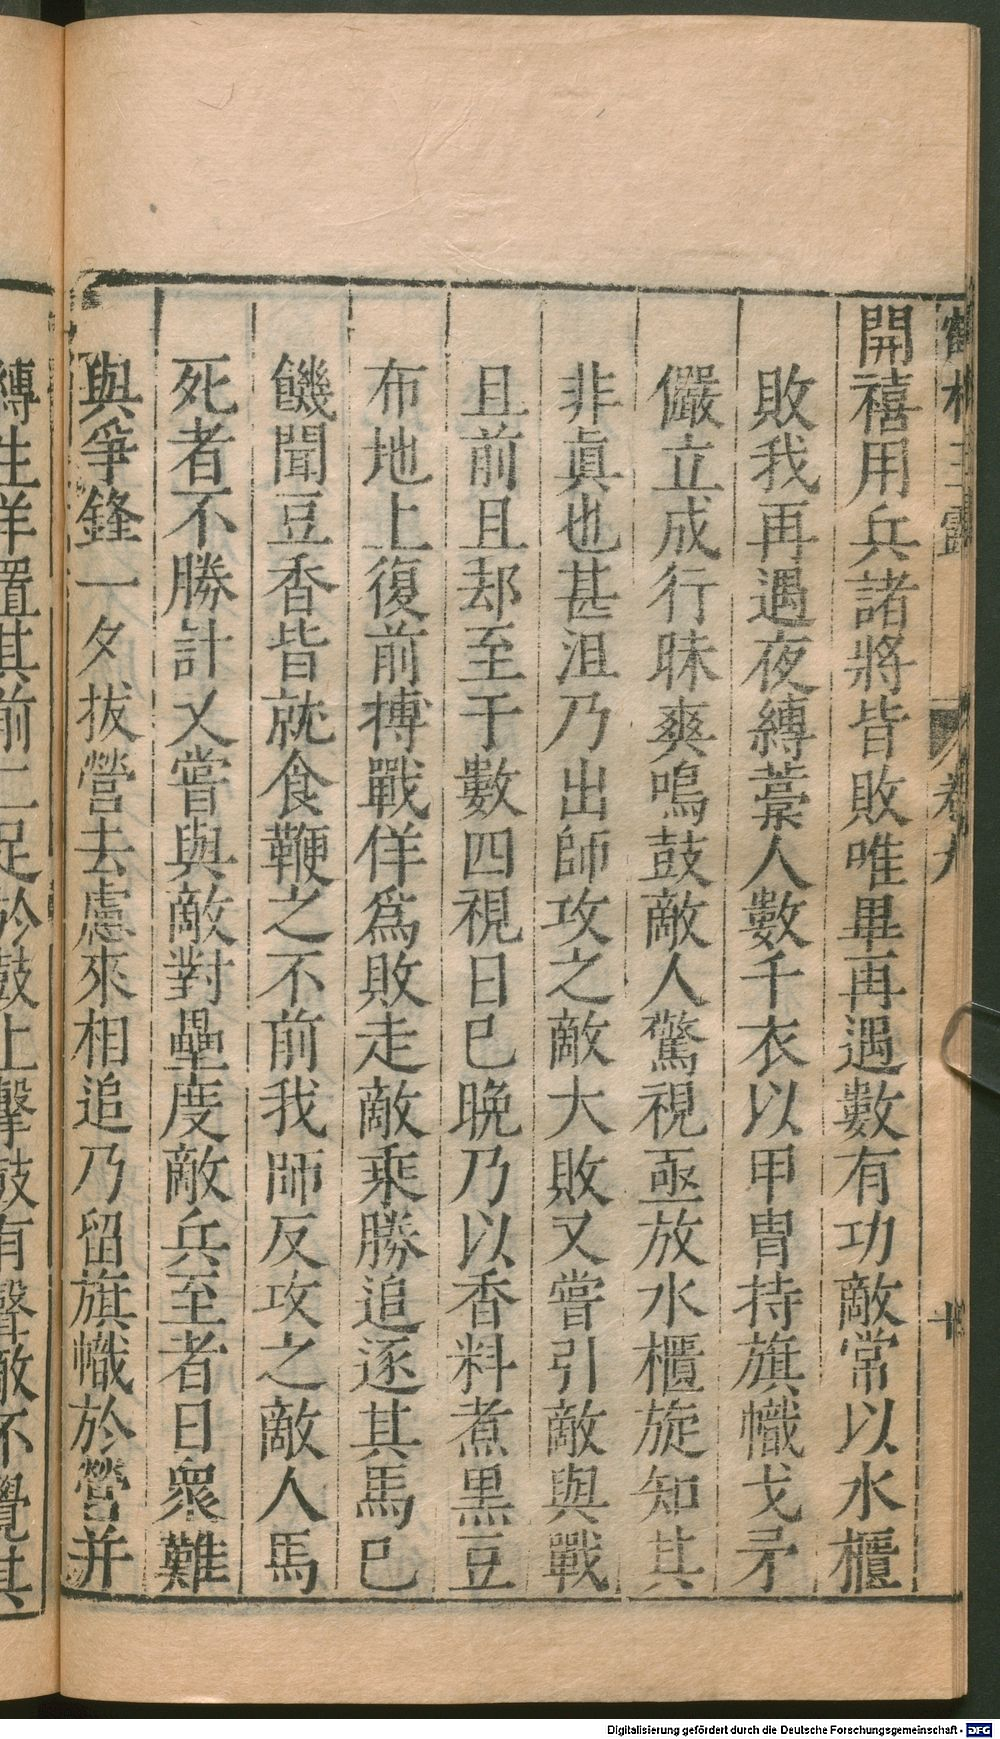 鶴林玉露 卷九 十
開禧用兵諸將皆敗唯畢再遇數有功敵常以水櫃
敗我再遇夜縛藁人數千衣以甲冑持旗幟戈矛
儼立成行昧爽鳴鼓敵人驚視亟放水櫃旋知其
非眞也甚沮乃出師攻之敵大敗又嘗引敵與戰
且前且却至于數四視日已晚乃以香料煮黑豆
布地上復前搏戰佯爲敗走敵乘勝追逐其馬已
饑聞豆香皆就食鞭之不前我師反攻之敵人馬
死者不勝計乂嘗與敵對壘度敵兵至者日衆難
與爭鋒一夕拔營去慮來相追乃留旗幟於營并
縛生羊置其前二足於鼓上擊鼓有聲敵不覺其
Digitalisierung gefördert durch die Deutsche Forschungsgemeinschaft - DFG